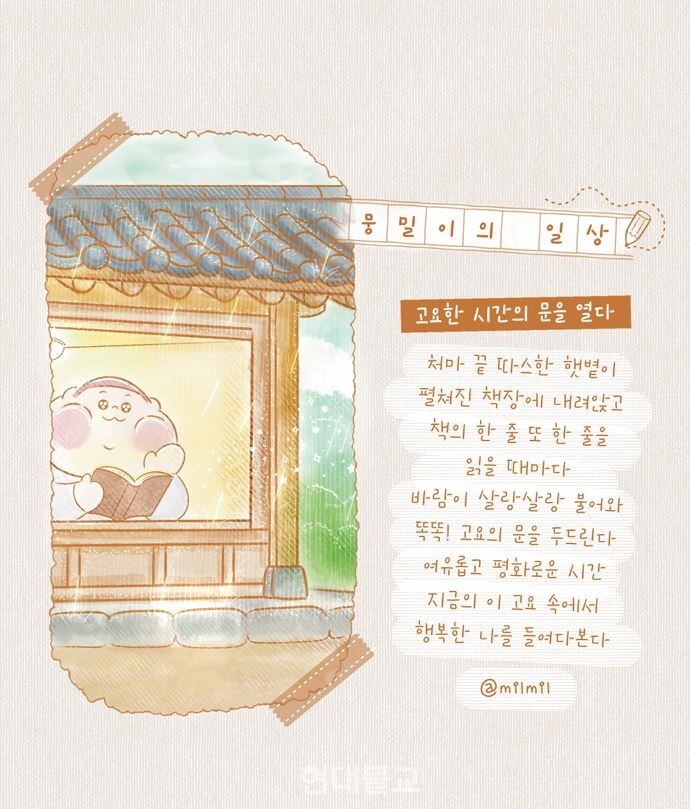 뭉밀이의 일상
고요한 시간의 문을 열다
처마 끝 따스한 햇볕이
펼쳐진 책장에 내려앉고
책의 한 줄 또 한 줄을
읽을 때마다
바람이 살랑살랑 불어와
똑똑! 고요의 문을 두드린다
여유롭고 평화로운 시간
지금의 이 고요 속에서
행복한 나를 들여다본다
@milmil
현대불교